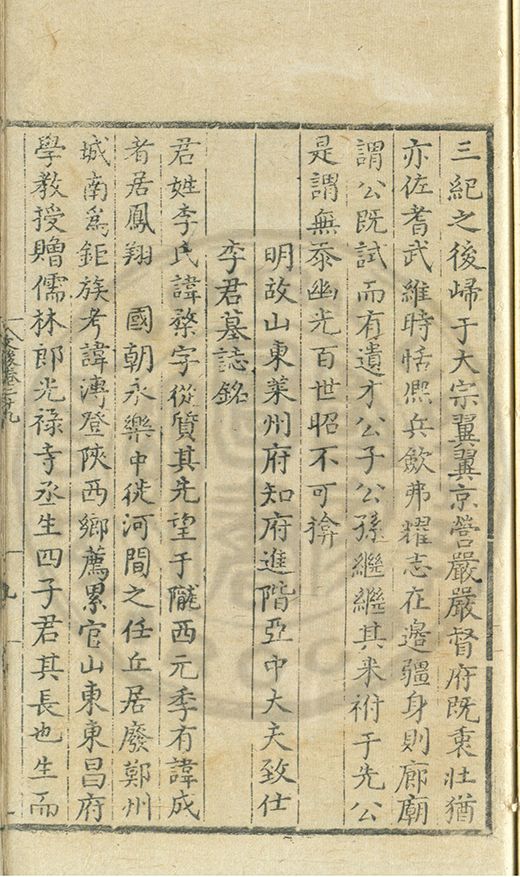 三紀之後歸于大宗翼翼京營嚴嚴督府既衷壯猶
亦佐耆武維時恬熈兵歛弗耀志在邊疆身則廊廟
謂公既試而有遺才公子公孫繼繼其来祔于先公
是謂無忝幽光百世昭不可揜
明故山東萊州府知府進階亞中大夫致仕
李君墓誌銘
君姓李氏諱棨字從質其先望于隴西元季有諱成
者居鳳翔　國朝永樂中徙河間之任丘居廢鄭州
城南爲鉅族考諱溥登陜西鄉薦累官山東東昌府
學教授贈儒林郎光禄寺丞生四子君其長也生而
文後卷之十九
九